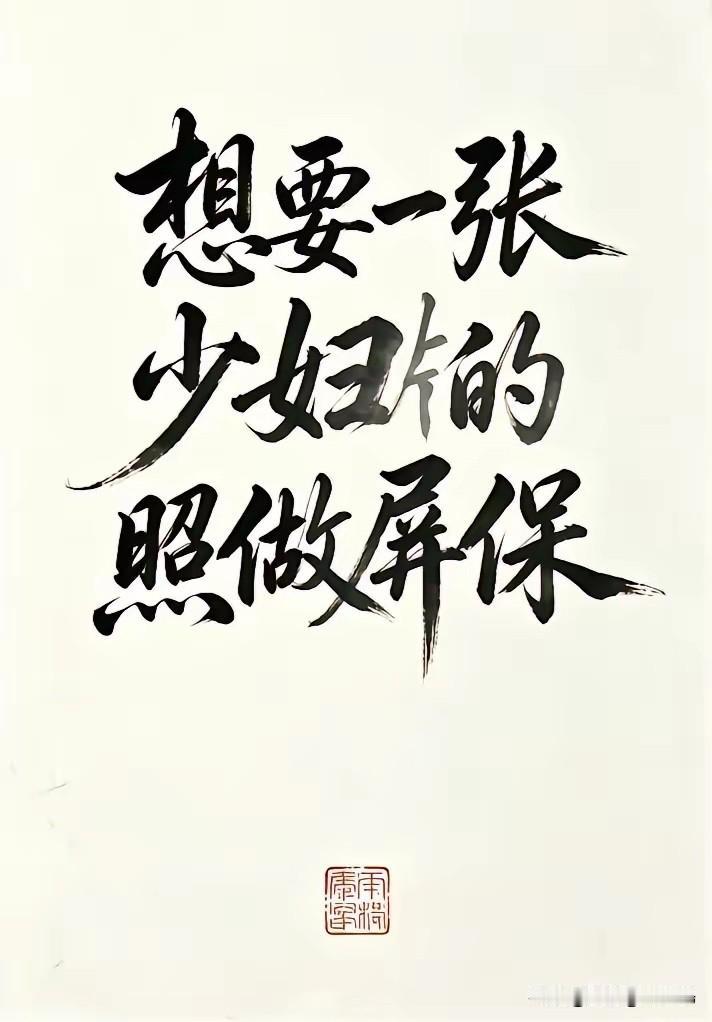 想要一张
少妇片的
照做屏保